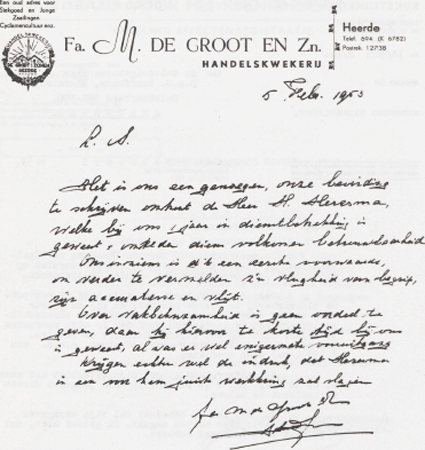 Een oud adres voor
Stekgoed en Jonge
Zaailingen
Cyclamencultuur enz.
Fa. M. DE GROOT EN Zn.
HANDELSKWEKERIJ
Heerde
Telef. 694 (K 6782)
Postrek. 12738
5 Febr. 1953
L. S.
Het is ons een genoegen, onze bevinding
te schrijven omtrent de Heer H.
welke bij ons 1 jaar in dienstbetrekking is
geweest, omtrent diens volkomen betrouwbaarheid
Ons inziens is dit een eerste voorwaarde,
en verder te vermelden z'n vlugheid van begrip,
zijn accuratesse en vlijt.
Over vakbekwaamheid is geen oordeel te
geven, daar hij hiervoor te korte tijd bij ons
is geweest, al was er wel enigermate vooruitgang
Krijgen echter wel de indruk, dat
in een voor hem juiste werkkring zal slagen
fa M de Groot Zn